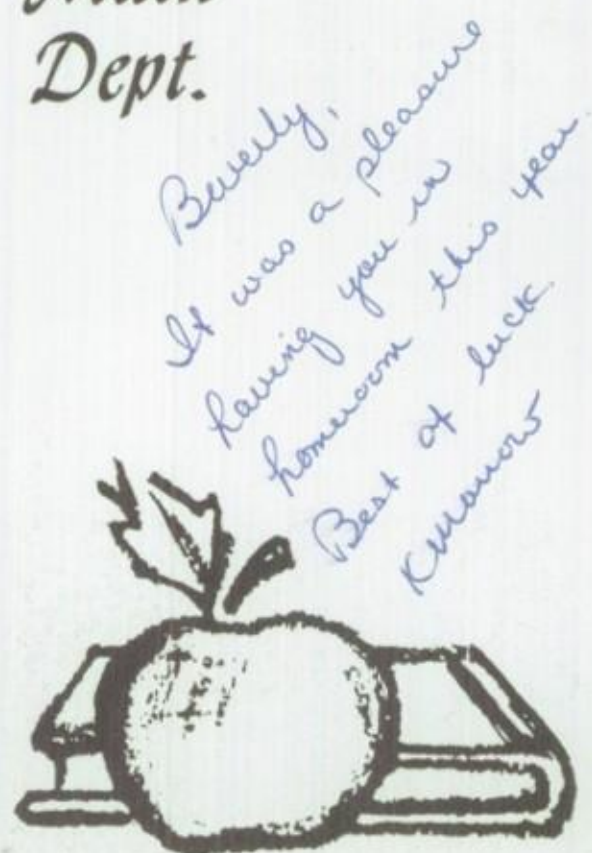 Dept.
Beverly,
It was a pleasure
having you in
homeroom this year.
Best of luck